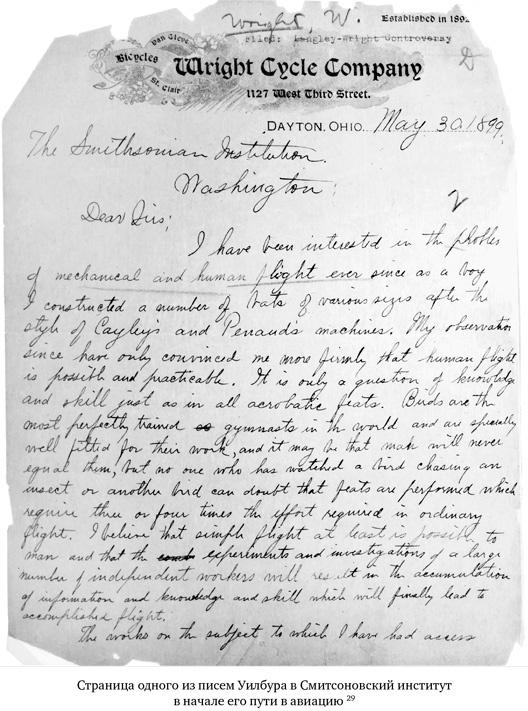 Wright, W.
Established in 189
Filed: Langley-Wright Controversy
Van Cleve
Bicycles
St. Clair
Wright Cycle Company
1127 West Third Street.
DAYTON, OHIO. May 30, 1899.
The Smithsonian Institution.
Washington;
Dear Sirs;
I have been interested in the problem
of mechanical and human flight ever since as a boy
I constructed a number of bats of various sizes after the
style of Cayley's and Penaud's machines. My observations
since have only convinced me more firmly that human flight
is possible and practicable. It is only a question of knowledge
and skill just as in all acrobatic feats. Birds are the
most perfectly trained gymnasts in the world and are specially
well fitted for their work, and it may be that man will never
equal them, but no one who has watched a bird chasing an
insect or another bird can doubt that feats are performed which
require three or four times the effort required in ordinary
flight. I believe that simple flight at least is possible to
man and that the experiments and investigations of a large
number of independent workers will result in the accumulation
of information and knowledge and skill which will finally lead to
accomplished flight.
The works on the subject to which I have had access
Страница одного из писем Уилбура в Смитсоновский институт
в начале его пути в авиацию 29